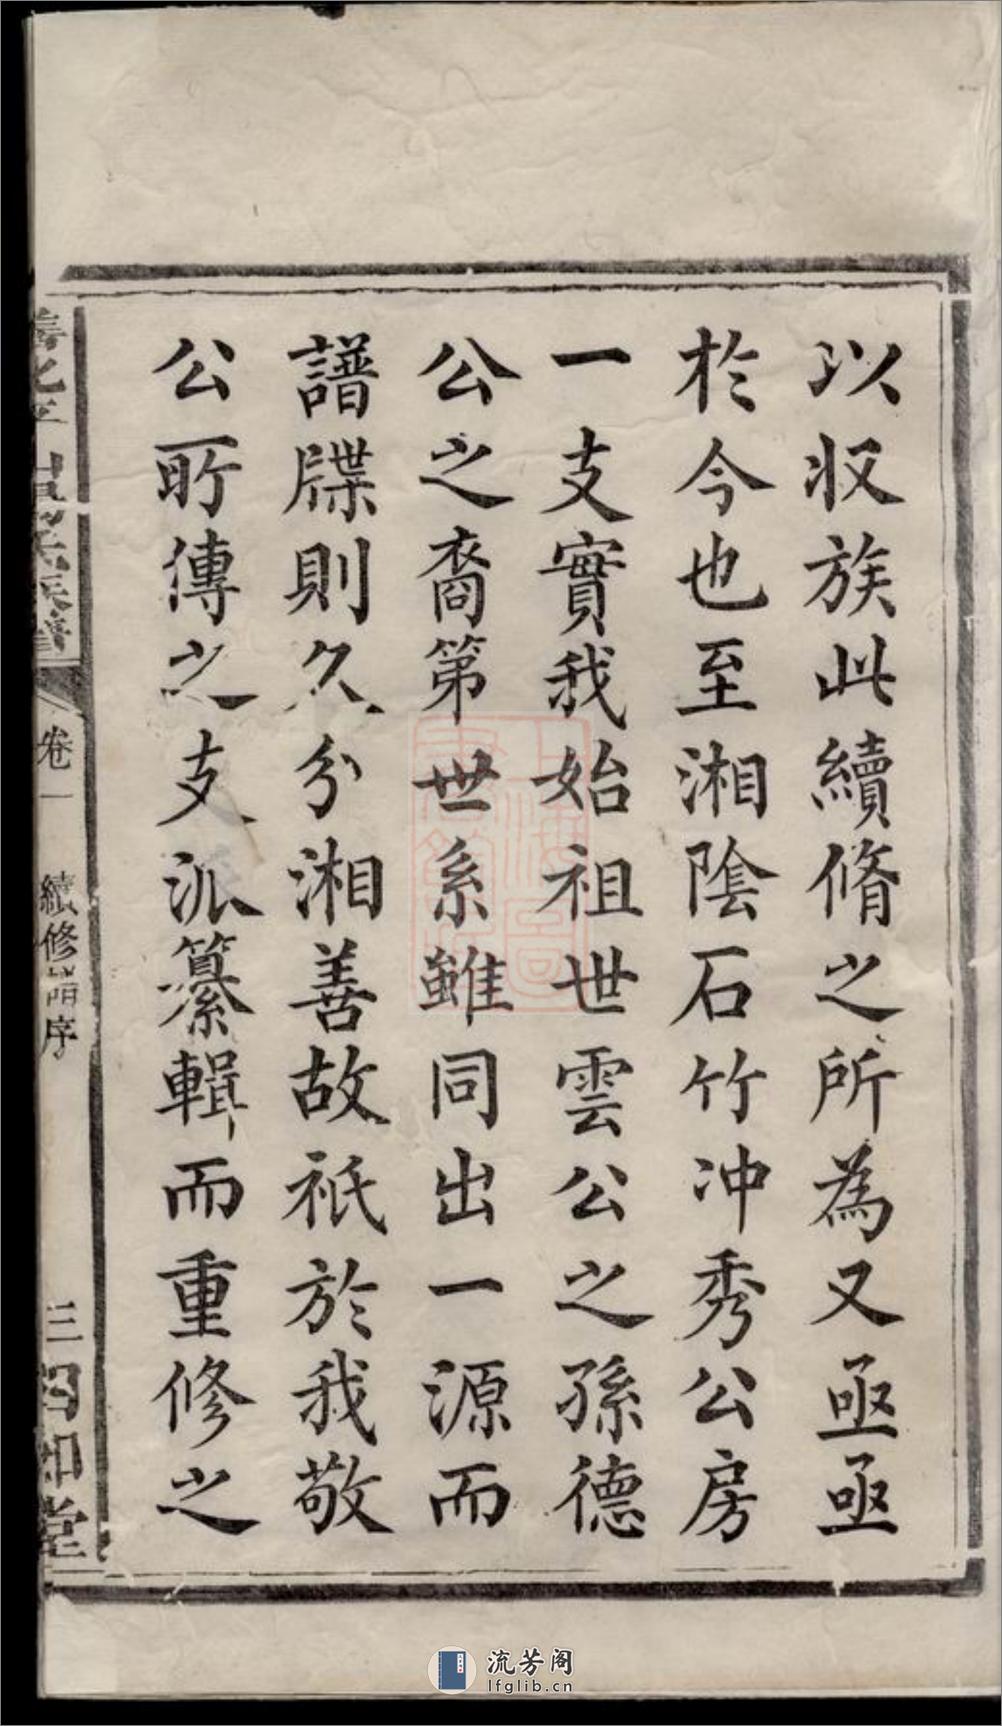 以収族此續脩之所為又亟亟
於今也至湘陰石竹冲秀公房
一支實我始祖世雲公之孫德
公之裔第世系雖同出一源而
譜牒則久分湘善故祇於我敬
公所傳之支派纂輯而重修之
卷一
續修譜序
三
四知堂
流芳阁
lfglib.cn